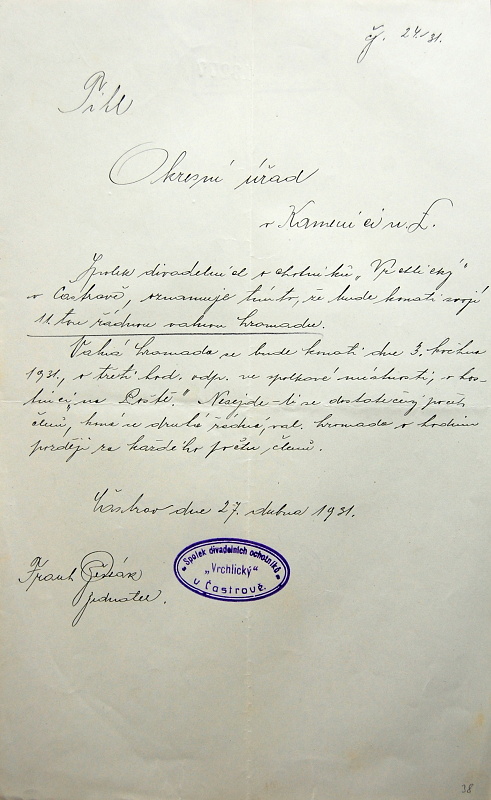 čj. 24/31.
Okresní úřad
v Kamenici n. L.
Spolek divadelních ochotníků „Vrchlický“
v Častrově, oznamuje tímto, že bude konati svoji
11. tou řádnou valnou hromadu.
Valná hromada se bude konati dne 3. května
1931., o třetí hod. odp. ve spolkové místnosti, v hos-
tinci „na Poště.“ Nesejde-li se dostatečný počet
členů, koná se druhá řádná, val. hromada o hodinu
později za každého počtu členů.
Častrov dne 27. dubna 1931.
Spolek divadelních ochotníků
„Vrchlický“
v Častrově.
Frant.
jednatel.
38